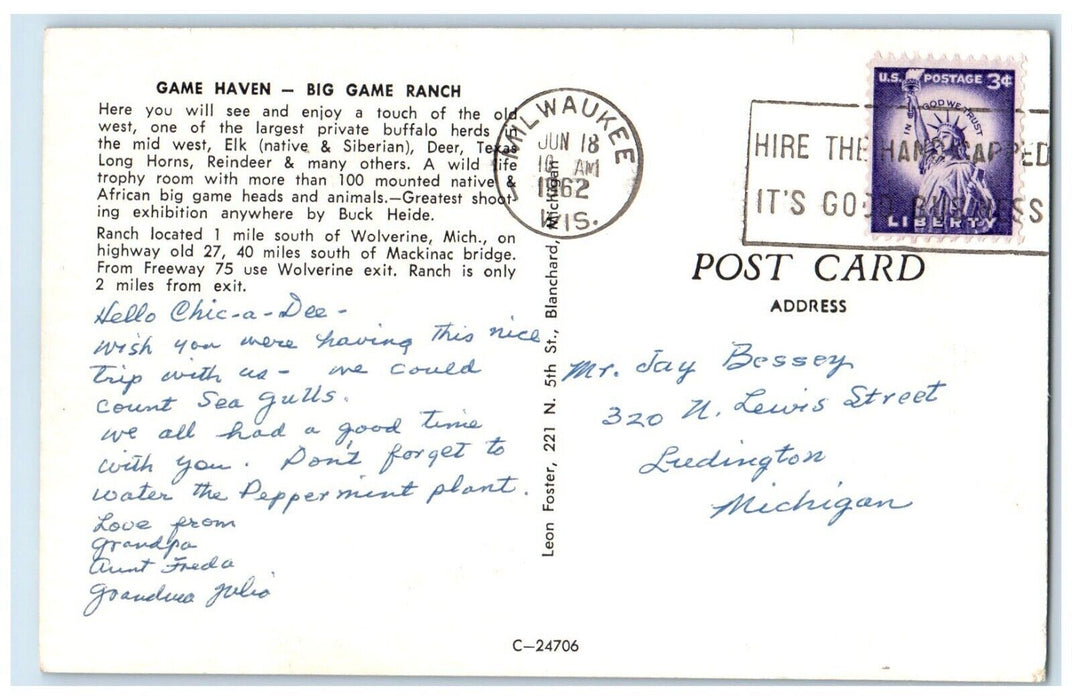 GAME HAVEN — BIG GAME RANCH
Here you will see and enjoy a touch of the old
west, one of the largest private buffalo herds in
the mid west, Elk (native & Siberian), Deer, Texas
Long Horns, Reindeer & many others. A wild life
trophy room with more than 100 mounted native &
African big game heads and animals.—Greatest shoot-
ing exhibition anywhere by Buck Heide.
Ranch located 1 mile south of Wolverine, Mich., on
highway old 27, 40 miles south of Mackinac bridge.
From Freeway 75 use Wolverine exit. Ranch is only
2 miles from exit.
Hello Chic-a-Dee-
wish you were having this nice
trip with us - we could
count Sea Gulls.
we all had a good time
with you. Don't forget to
water the Peppermint plant.
Love from
Grandpa
Aunt Freda
Grandma Julia
Leon Foster, 221 N. 5th St., Blanchard, Michigan
MILWAUKEE
JUN 18
AM
1962
WIS.
HIRE THE HANDICAPPED
IT'S GOOD BUSINESS
U.S. POSTAGE 3¢
IN GOD WE TRUST
LIBERTY
POST CARD
ADDRESS
Mr. Jay Bessey
320 N. Lewis Street
Ludington
Michigan
C—24706